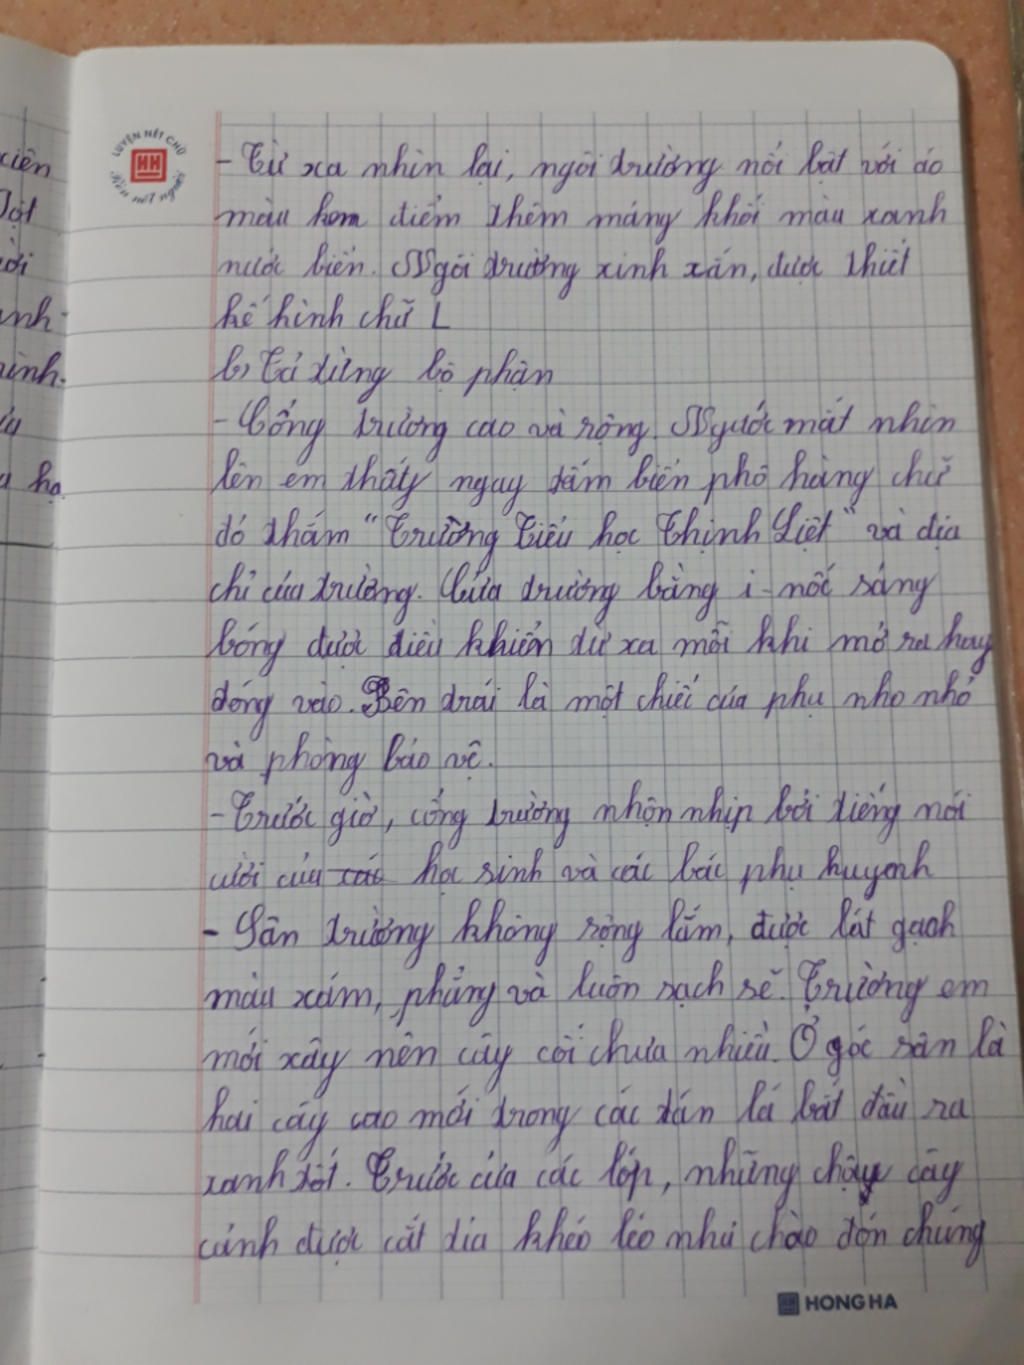 xiên
LUYỆN NÉT CHỮ
HH
Rèn nết người
- Từ xa nhìn lại, ngôi trường nổi bật với áo
màu kem điểm thêm mảng khối màu xanh
nước biển. Ngôi trường xinh xắn, được thiết
kế hình chữ L
b, Tả từng bộ phận
- Cổng trường cao và rộng. Ngước mắt nhìn
lên em thấy ngay tấm biển phô hàng chữ
đỏ thắm "Trường Tiểu học Thịnh Liệt" và địa
chỉ của trường. Cửa trường bằng i-nốc sáng
bóng được điều khiển từ xa mỗi khi mở ra hay
đóng vào. Bên trái là một chiếc cửa phụ nho nhỏ
và phòng bảo vệ.
- Trước giờ, cổng trường nhộn nhịp bởi tiếng nói
cười của các học sinh và các bác phụ huynh
- Sân trường không rộng lắm, được lát gạch
màu xám, phẳng và luôn sạch sẽ. Trường em
mới xây nên cây cối chưa nhiều. Ở góc sân là
hai cây cao mới trong các tán lá bắt đầu ra
xanh tốt. Trước cửa các lớp, những chậu cây
cảnh được cắt tỉa khéo léo như chào đón chúng
HH HONG HA